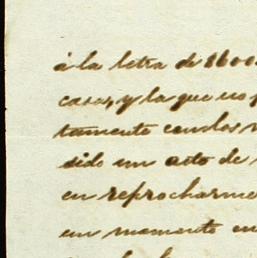 á la letra de 1600
casas, y la que no
tamente con los
sido un acto de
en reprocharme
un momento en